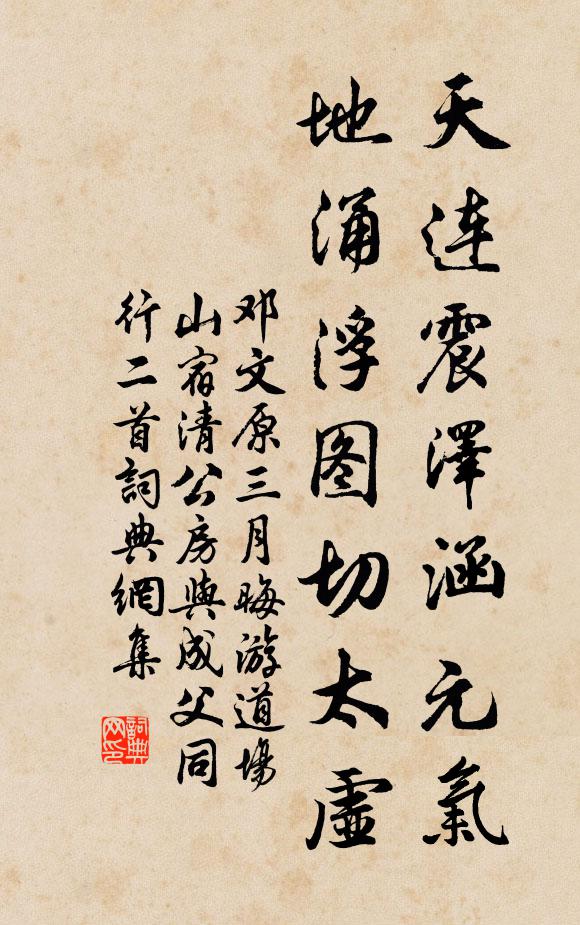 天连震澤涵元氣
地涌浮图切太虛
邓文原三月晦游道場
山宿清公房與成父同
行二首詞典網集
詞典
网印